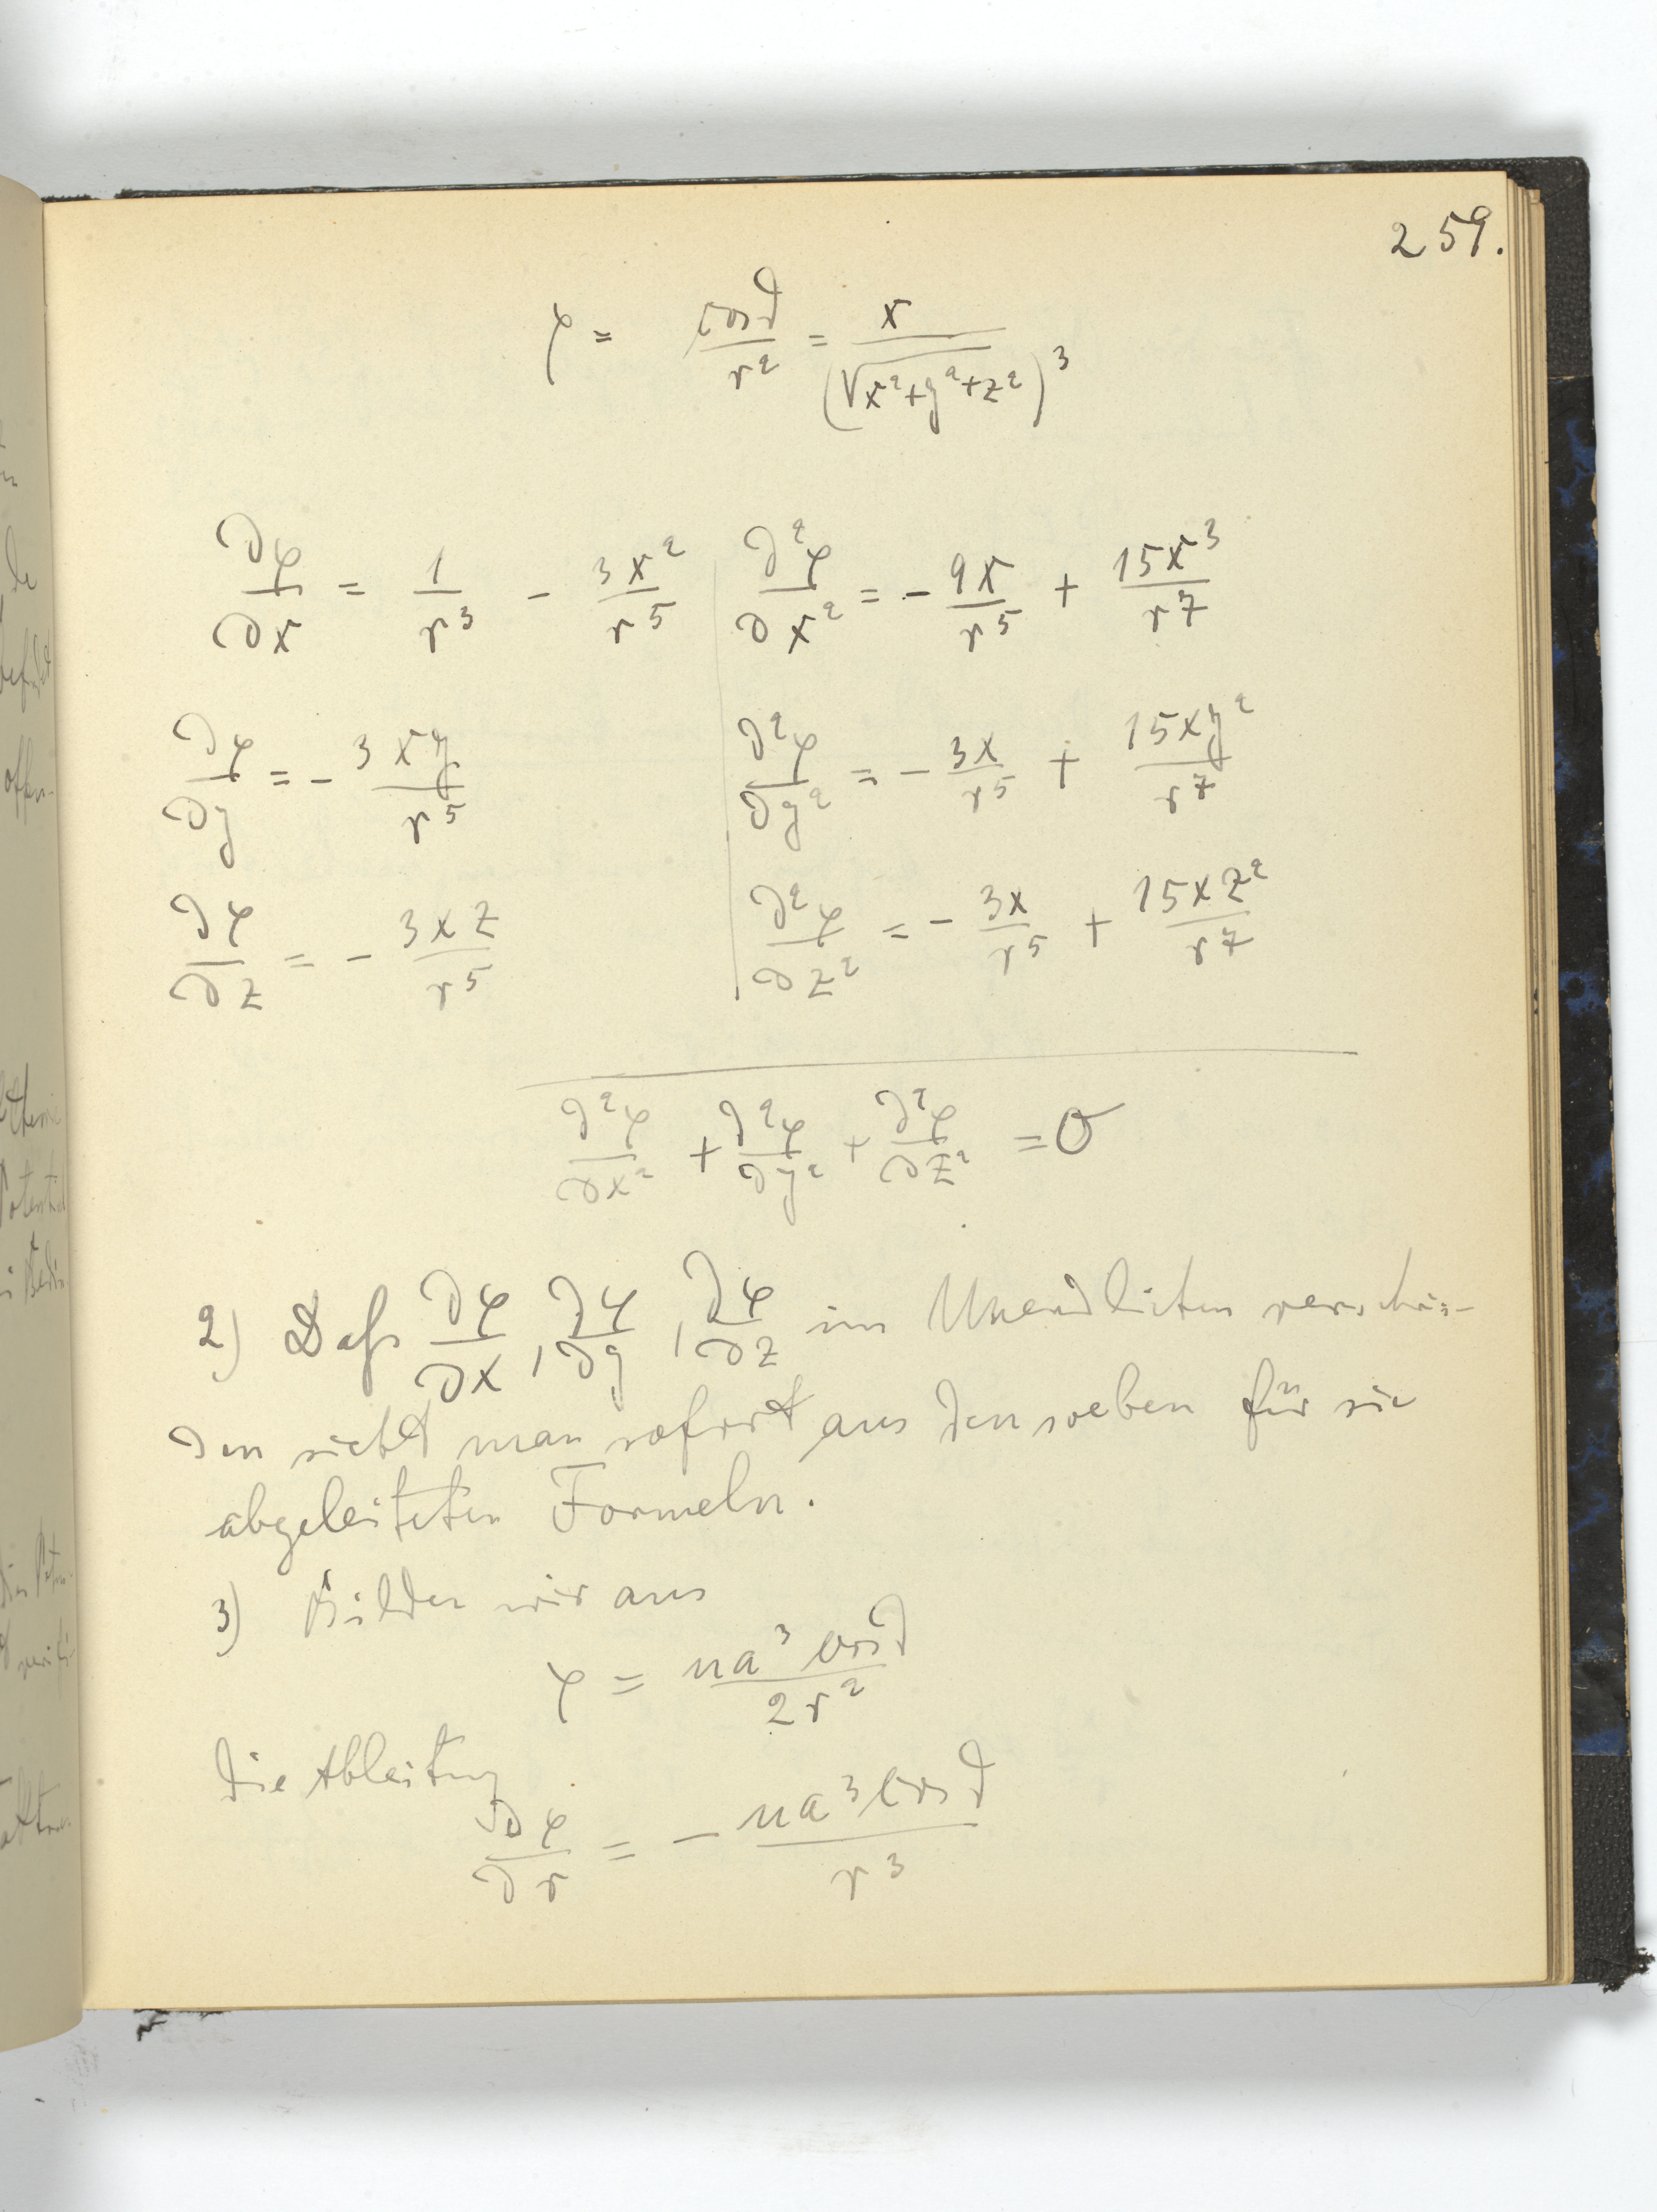 259.
φ = cos ϑ / r² = x / (√x²+y²+z²)³
∂φ/∂x = 1/r³ - 3x²/r⁵ | ∂²φ/∂x² = - 9x/r⁵ + 15x³/r⁷
∂φ/∂y = - 3xy/r⁵ | ∂²φ/∂y² = - 3x/r⁵ + 15xy²/r⁷
∂φ/∂z = - 3xz/r⁵ | ∂²φ/∂z² = - 3x/r⁵ + 15xz²/r⁷
∂²φ/∂x² + ∂²φ/∂y² + ∂²φ/∂z² = 0
2) Daß ∂φ/∂x, ∂φ/∂y, ∂φ/∂z im Unendlichen verschwin-
den sieht man sofort aus den soeben für sie
abgeleiteten Formeln.
3) Bilden wir aus
φ = ua³ cos ϑ / 2r²
die Ableitung
∂φ/∂r = - ua³ cos ϑ / r³